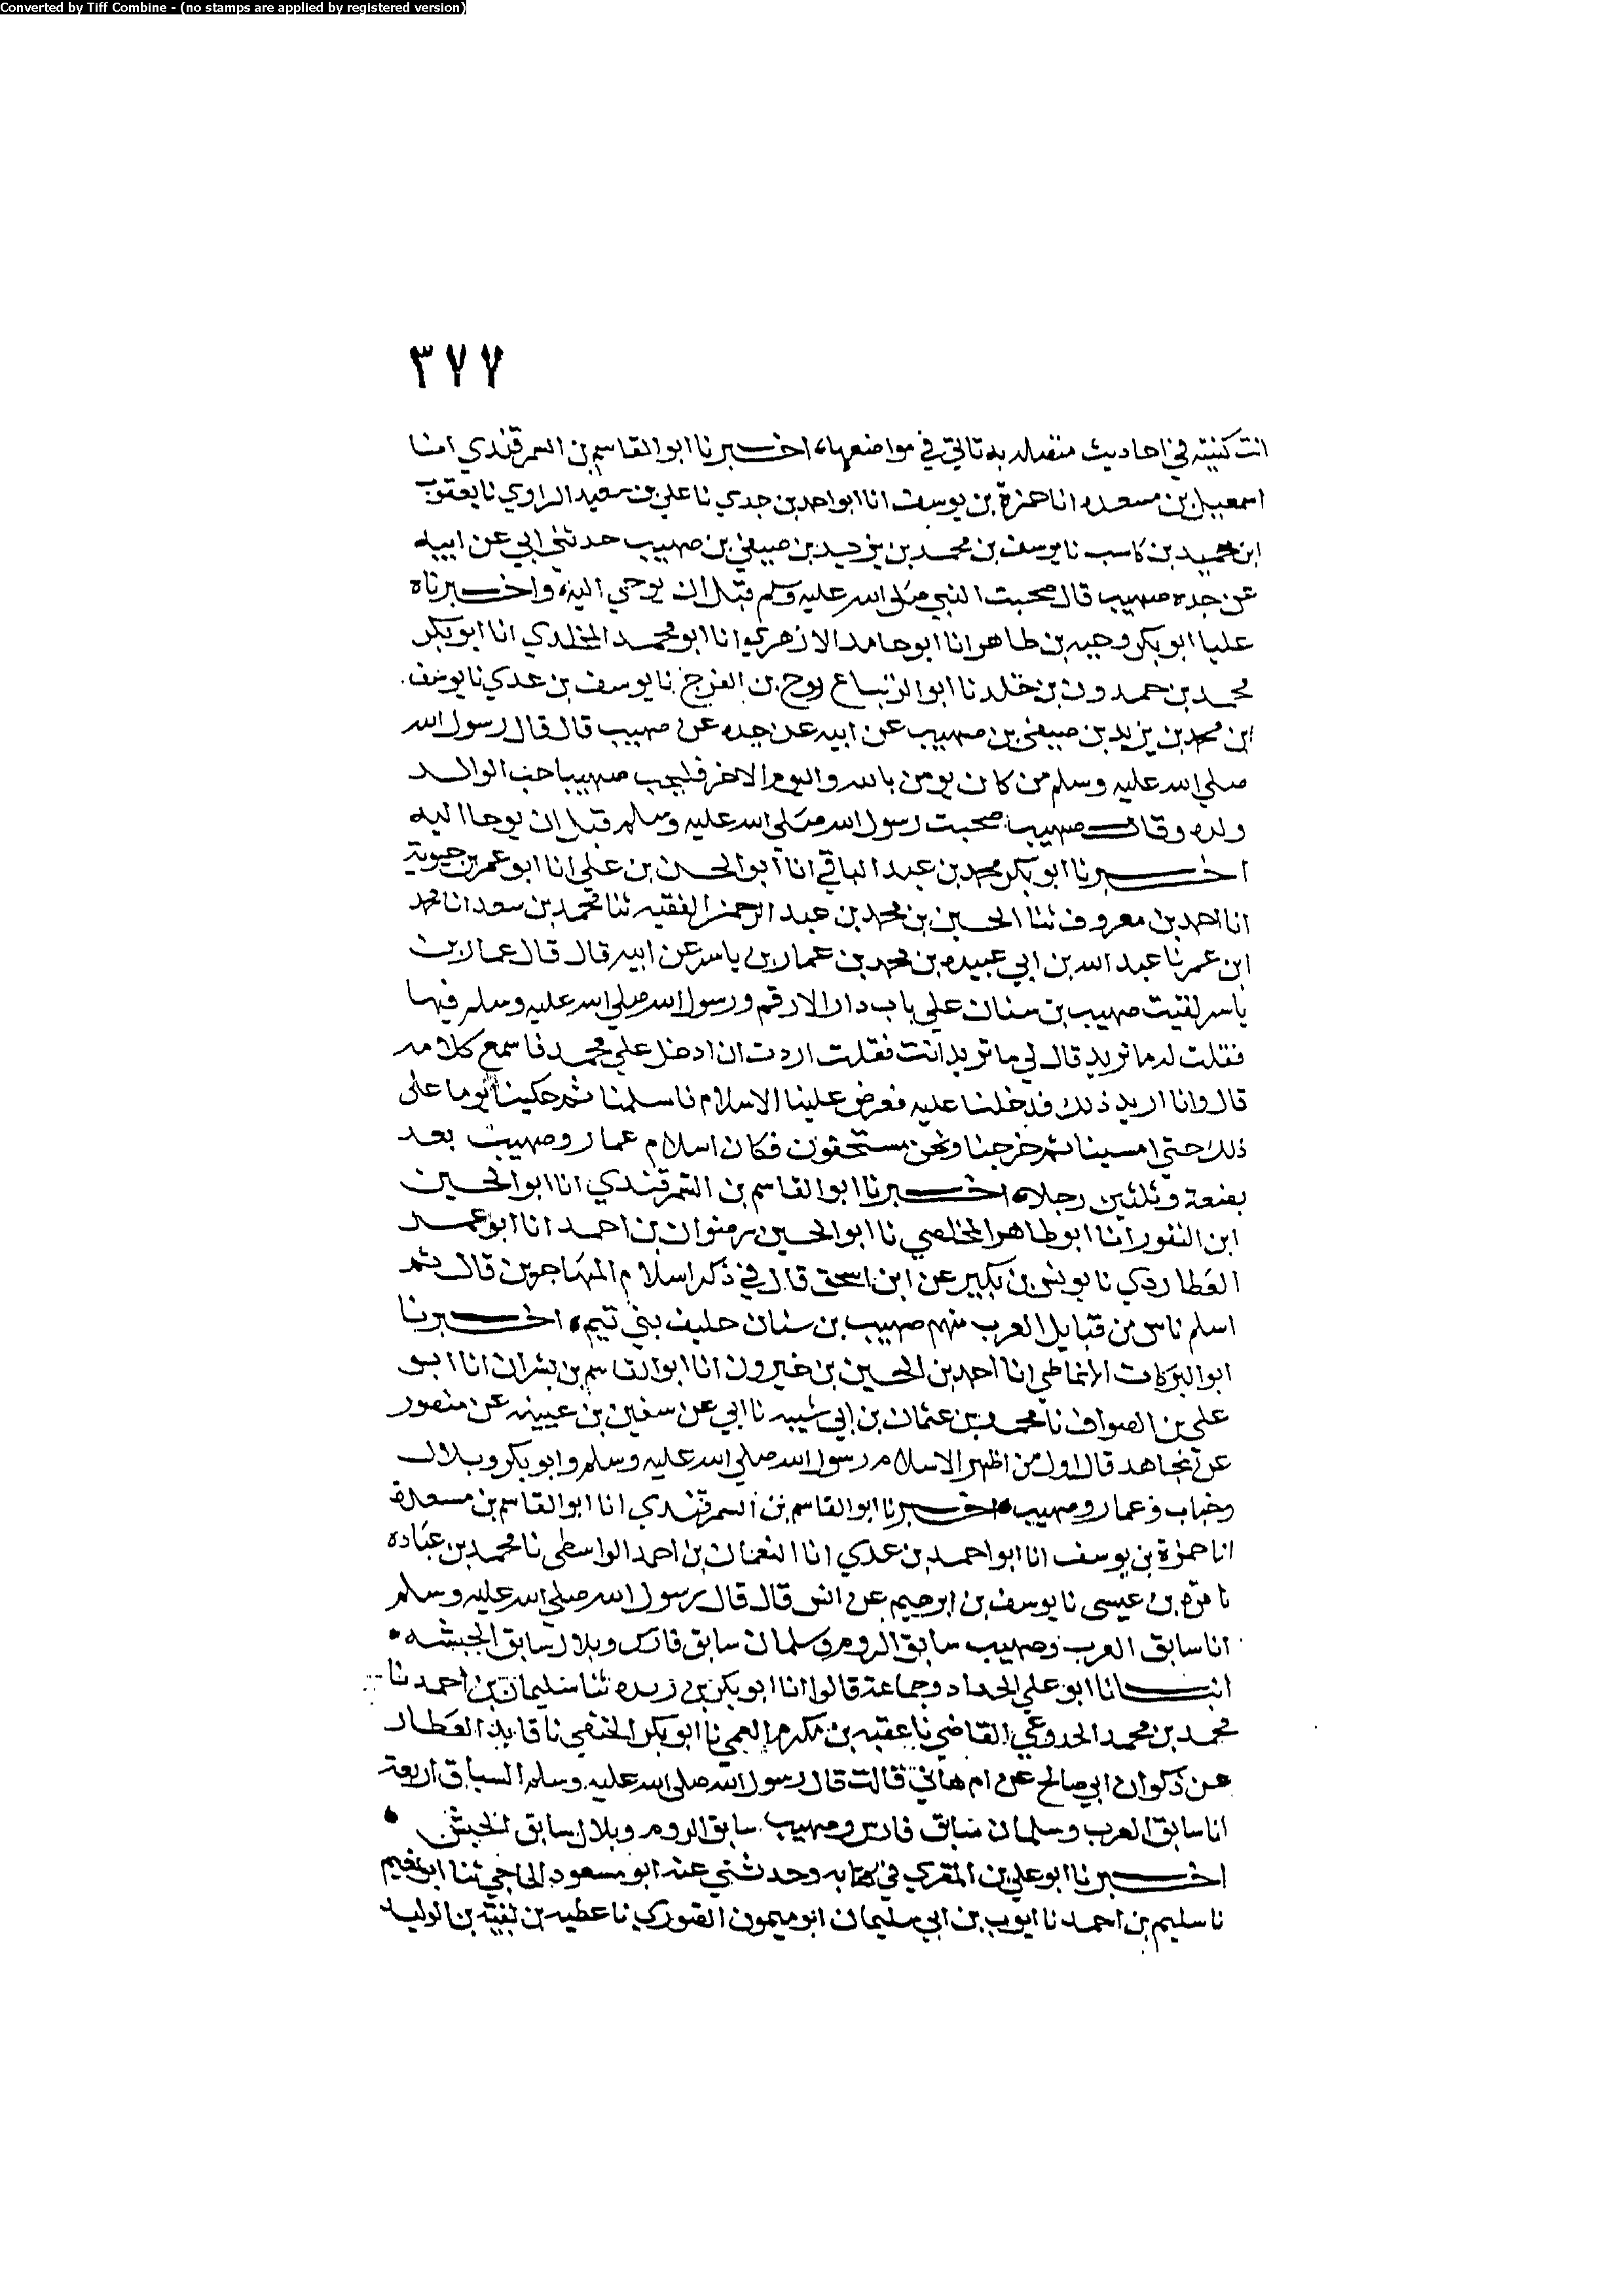 Converted by Tiff Combine - (no stamps are applied by registered version)
٣٧٧
اتت كنيته في احاديث متصله به تاتي في مواضعها، اخبرنا ابو القاسم بن السمرقندي انا
اسمعيل بن مسعده انا حمزة بن يوسف انا ابو احد بن جدي نا علي بن سعيد الراوي نا يعقوب
ابن حميد بن كاسب نا يوسف بن محمد بن يزيد بن صيفي بن صهيب حدثني ابي عن ابيه
عن جده صهيب قال صحبت النبي صلى الله عليه وسلم قبل ان يوحي اليه، واخبرناه
عليا ابو بكر وجيه بن طاهر انا ابو حامد الازهري انا ابو محمد المخلدي انا ابو بكر
محمد بن حمدون بن خلد نا ابو الزنباع روح بن الفرج نا يوسف بن عدي نا يوسف
ابن محمد بن يزيد بن صيفي بن صهيب عن ابيه عن جده عن صهيب قال قال رسول الله
صلي الله عليه وسلم من كان يومن بالله واليوم الاخر فليحب صهيبا حب الوالد
ولده وقال صهيب صحبت رسول الله صلى الله عليه وسلم قبل ان يوحا اليه
اخبرنا ابو بكر محمد بن عبد الباقي انا ابو الحسن بن علي انا ابو عمر بن حيوية
انا احمد بن معروف ثنا الحسين بن محمد بن عبد الرحمن الفقيه ثنا محمد بن سعد انا محمد
ابن عمر نا عبد الله بن ابي عبيده بن محمد بن عمار بن ياسر عن ابيه قال قال عمار بن
ياسر لقيت صهيب بن سنان علي باب دار الارقم ورسول الله صلي الله عليه وسلم فيها
فقلت له ما تريد قال لي ما تريد انت فقلت اردت ان ادخل علي محمد فاسمع كلامه
قال وانا اريد ذلك فدخلنا عليه فعرض علينا الاسلام فاسلمنا ثم مكينا يوما على
ذلك حتي امسينا ثم خرجنا ونحن مستخفون فكان اسلام عمار وصهيب بعد
بضعة وثلثين رجلا، اخبرنا ابو القاسم بن السمرقندي انا ابو الحسين
ابن النقور انا ابو طاهر المخلصي نا ابو الحسين رضوان بن احمد انا ابو عمر
العطاردي نا يونس بن بكير عن ابن اسحق قال في ذكر اسلام المهاجرين قال ثم
اسلم ناس من قبايل العرب منهم صهيب بن سنان حليف بني تيم، اخبرنا
ابو البركات الانماطي انا احمد بن الحسين بن خيرون انا ابو القاسم بن بشران انا ابو
علي بن الصواف نا محمد بن عثمان بن ابي شيبه نا ابي عن سفين بن عيينه عن منصور
عن مجاهد قال اول من اظهر الاسلام رسول الله صلي الله عليه وسلم وابو بكر وبلال
وخباب وعمار وصهيب، اخبرنا ابو القاسم بن السمرقندي انا ابو القاسم بن مسعدة
انا حمزة بن يوسف انا ابو احمد بن عدي انا النعمان بن احمد الواسطي نا محمد بن عباده
نا قره بن عيسى نا يوسف بن ابرهيم عن انس قال قال رسول الله صلي الله عليه وسلم
انا سابق العرب وصهيب سابق الروم وسلمان سابق فارس وبلال سابق الحبشه.
انبانا ابو علي الحداد وجماعة قالوا انا ابو بكر بن ريده ثنا سليمان بن احمد نا
محمد بن محمد الجدوعي القاضي نا عقبه بن مكرم العمي نا ابو بكر الحنفي نا قايد العطار
عن ذكوان ابي صالح عن ام هاني قالت قال رسول الله صلى الله عليه وسلم السباق اربعة
انا سابق العرب وسلمان سباق فارس وصهيب سابق الروم وبلال سابق الحبش.
اخبرنا ابو علي بن المقري في كتابه وحدثني عنه ابو مسعود الحاجي ثنا ابو نعيم
نا سليم بن احمد نا ايوب بن ابي سليمان ابو ميمون الصوري نا عطيه بن بقيه بن الوليد